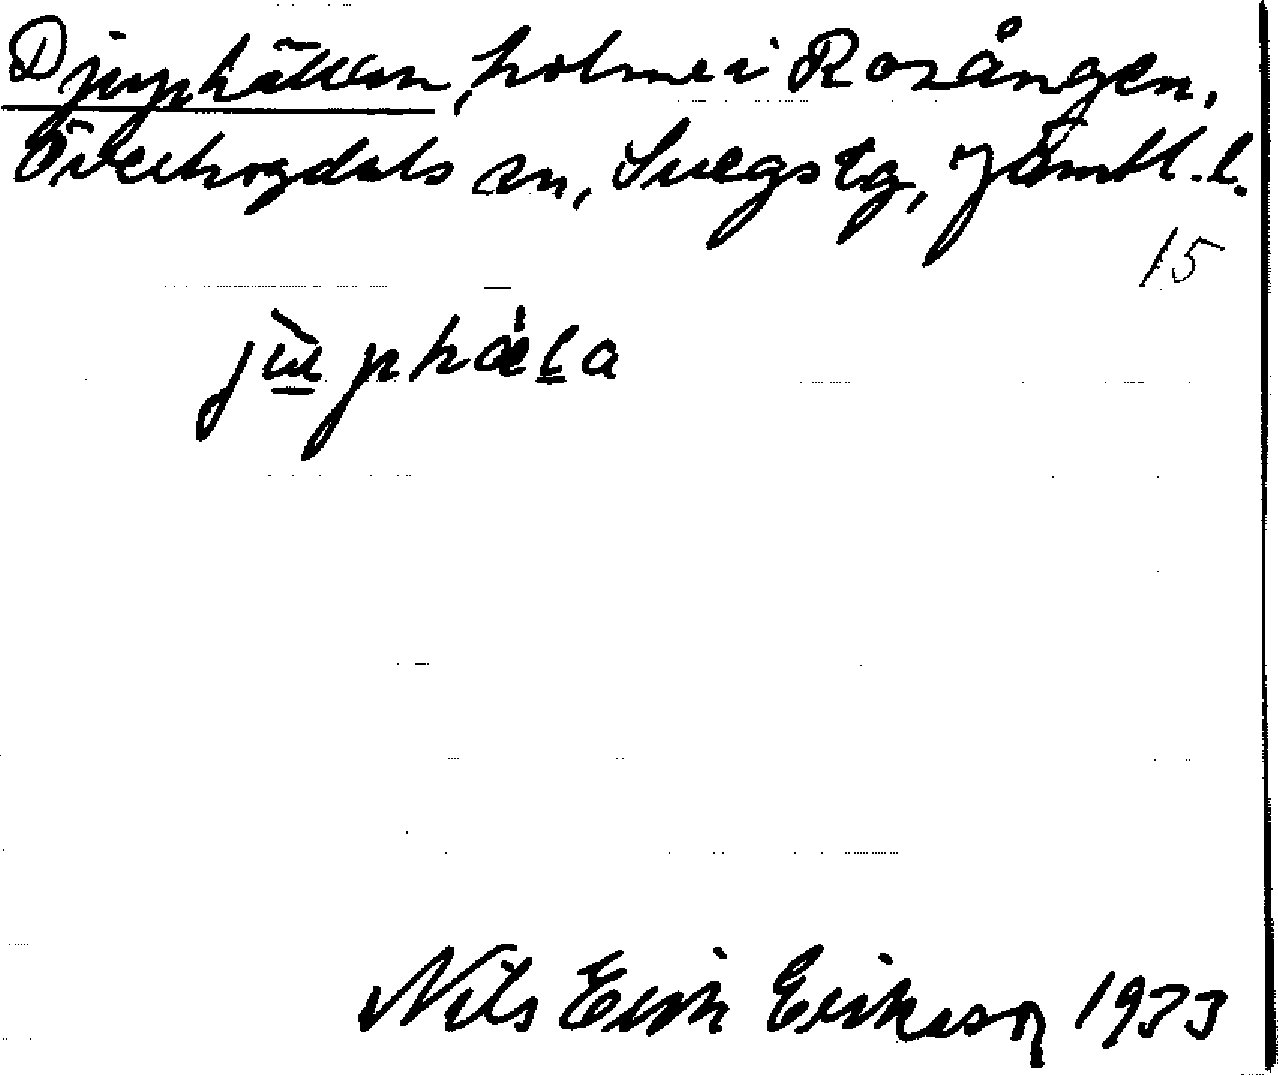 Djuphällan, holme i Rosången,
Överhogdals sn, Svegs tg, Jämtl. l.
15
Nils Erik Eriksson 1933